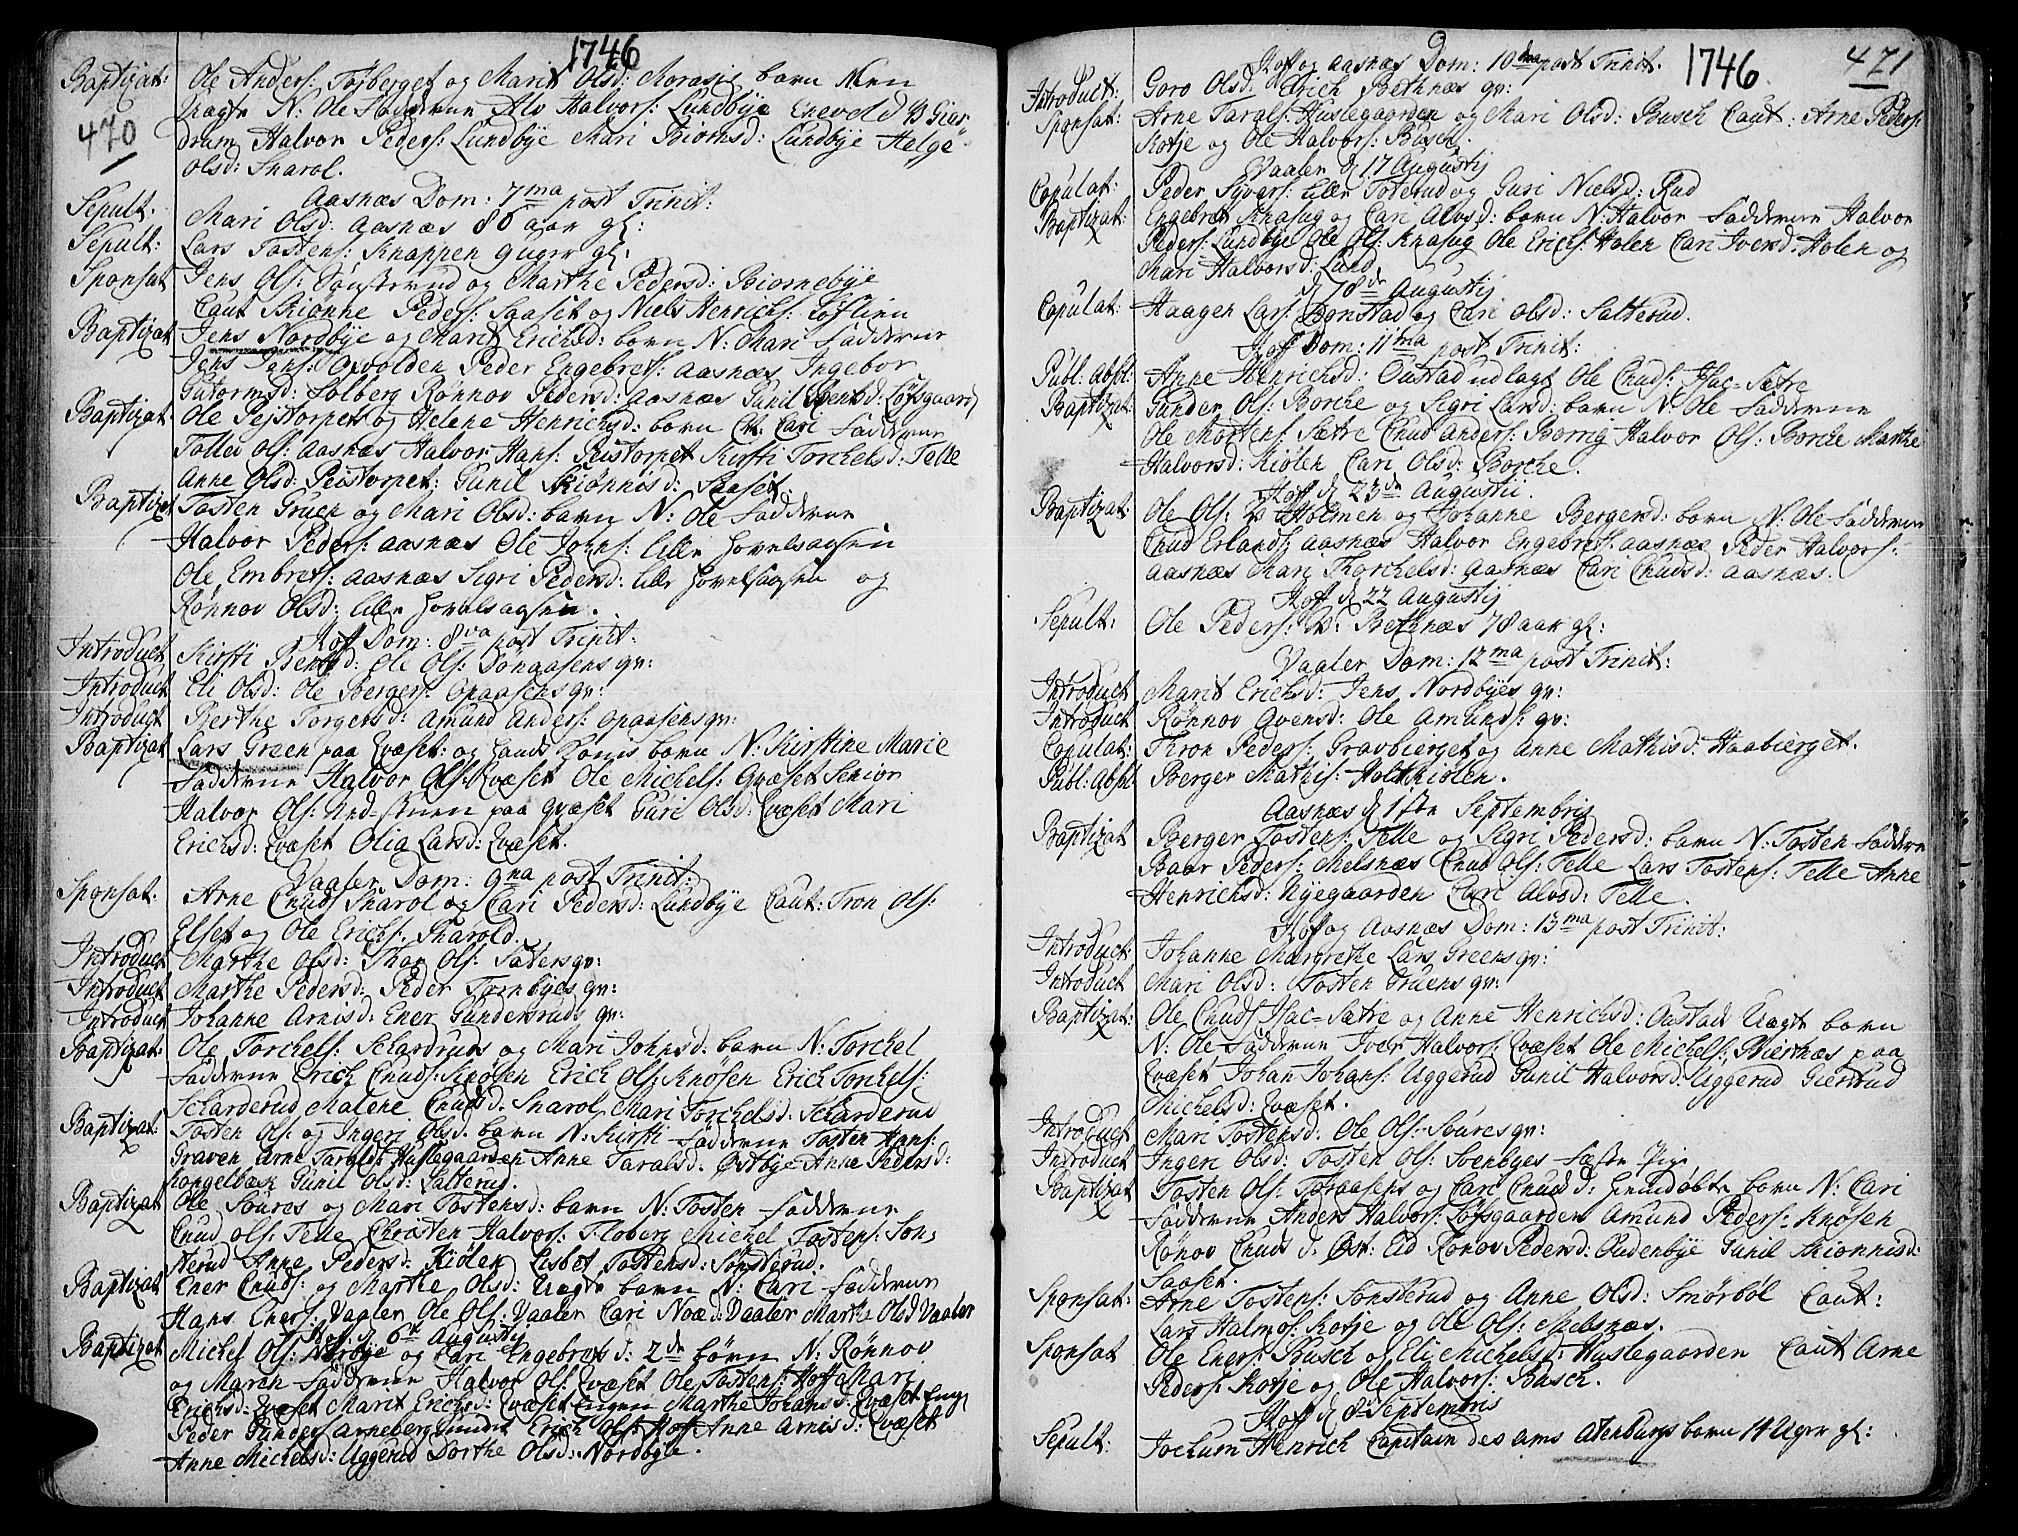 1746
470
Baptizat: Ole Anders: Tosberget og Marit Olsd: Morasig barn
N: Ole Fadderne Alv Halvors: Lundbye Enevold
drum Halvor Peders: Lundbye Mari Biornsd: Lundbye Helge
Olsd: Snarol.
Aasnæs Dom: 7ma post Trinit:
Sepult: Mari Olsd: Aasnæs 86 aar gl:
Sepult: Lars Tostens: Knappen 9 uger gl:
Sponsat Jens Ols: Sønsterud og Marthe Pedersd: Biørnebye
Caut Skiønne Peders: Saaset og Niels Henrichs: Løflien
Baptizat Jens Nordbye og Marit Erichsd: barn N: Mari Fadderne
Jens Jens: Opvolden Peder Engebrets: Aasnæs Ingebor
Gutormsd: Solberg Rønnov Pedersd: Aasnæs Gunil Bentsd: Løfsgaard
Baptizat Ole Peistorpet og Helene Henrichsd: barn N: Cari Fadderne
Tollev Ols: Aasnæs Halvor Hans: Peistorpet Kirsti Torchelsd: Telle
Anne Olsd: Peistorpet: Gunil Skiønnisd: Saaset
Baptizat Tosten Gruen og Mari Olsd: barn N: Ole Fadderne
Halvor Peders: Aasnæs Ole Johns: lille Hovelsaasen
Ole Embrets: Aasnæs Sigri Pedersd: lille Hovelsaasen og
Rønnov Olsd: lille Hovelsaasen.
Hoff Dom: 8va post Trinit:
Introduct Kirsti Bentsd: Ole Ols: Sønaasens qv:
Introduct Eli Olsd: Ole Bergers: Opaasens qv:
Introduct Berthe Torgersd: Amund Anders: Opaasens qv:
Baptizat Lars Green paa Qvæset: og hands Konis barn N: Kirstine Marie
Fadderne Halvor Ols: Qvæset Ole Michels: Qvæset Senior
Halvor Ols: Und-Stuen paa Qvæset Guri Olsd: Qvæset Mari
Erichsd: Qvæset Olia Larsd: Qvæset.
Vaaler Dom: 9na post Trinit:
Sponsat: Arne Cnuds: Snarol og Cari Pedersd: Lundbye Caut: Tron Ols:
Elset og Ole Erichs: Snarold.
Introduct Marthe Olsd: Thor Ols: Sæters qv:
Introduct Marthe Pedersd: Peder Tornbyes qv:
Introduct Johanne Arnisd: Ener Gundersruds qv:
Baptizat: Ole Torchels: Schardruds og Mari Johnsd. barn N: Torchel
Fadderne Erich Cnuds: Knøsen Erich Ols: Knøsen Erich Torchels:
Scharderud Malene Cnudsd. Snarol Mari Torchelsd: Scharderud
Baptizat: Tosten Ols: og Ingeri Olsd. barn N: Kirsti Fadderne Tosten Hans:
Graven Arne Taralds: Huslegaarden Anne Taralsd: Østbye Anne Pedersd:
Kongelbæk Gunil Olsd: Salterud.
Baptizat Ole Soures og Mari Tostensd: barn N: Tosten Fadderne
Cnud Ols: Telle Christen Halvors: Floberg Michel Tostens: Søn-
sterud Anne Pedersd: Kiølen Lisbet Tostensd: Sønsterud.
Baptizat Ener Cnuds: og Marthe Olsd: barn N: Cari Fadderne
Hans Eners: Vaaler Ole Ols: Vaaler Cari Noæd: Vaaler Marthe Olsd Vaaler
Hoff d. 6te Augusty
Baptizat Michel Ols: Nordbye og Cari Engebretsd: 2de børn N: Rønnov
og Maren Fadderne Halvor Ols: Qvæset Ole Tostens: Hoff Mari
Erichsd. Qvæset Marit Erichsd: Qvæset Marthe Johansd: Qvæset
Peder Gunders: Arneberg Erich Ols: Hoff Anne Arnisd: Qvæset
Anne Michelsd: Uggerud Dorthe Olsd: Nordbye.
1746.
471
Hoff og Aasnæs Dom: 10de post Trinit:
Introduct: Goro Olsd: Erich Bethnæs qv:
Sponsat: Arne Tarals: Huslegaarden og Mari Olsd: Busch Caut: Arne Peders:
Kotje og Ole Halvors: Busch.
Vaaler d. 17 Augustij
Copulat: Peder Syvers: lille Toterud og Guri Nielsd: Rud
Baptizat: Engebret Knasug og Cari Alvsd: barn N: Halvor Fadderne Halvor
Peders: Lundbye Ole Ols: Knasug Ole Erichs: Holen Cari Iversd: Holen og
Mari Halvorsd: Lund.
d. 18de Augustij
Copulat: Haagen Lars: Bonstad og Cari Olsd: Salterud.
Hoff Dom: 11ma post Trinit:
Publ: Absol: Anne Henrichsd: Oustad udlagt Ole Cnuds: Hac-Sætre
Baptizat Gunder Ols: Borche og Sigri Larsd: barn N: Ole Fadderne
Ole Mortens: Sætre Cnud Anders: Borrig Halvor Ols: Borche Marthe
Halvorsd: Kiølen Cari Olsd: Borche.
Hoff d. 23de Augustii.
Baptizat: Ole Ols: Holmen og Johanne Bergersd: barn N: Ole Fadderne
Cnud Erlands: Aasnæs Halvor Engebrets: Aasnæs Peder Halvors:
Aasnæs Mari Thorchelsd: Aasnæs Cari Cnudsd: Aasnæs.
Hoff d. 22 Augustij
Sepult: Ole Peders: Bethnæs 78 aar gl:
Vaaler Dom: 12ma post Trinit:
Introduct Marit Erichsd: Jens Nordbyes qv:
Introduct Rønnov Svensd: Ole Amunds: qv:
Copulat: Thron Peders: Gravbierget og Anne Mathisd: Haabierget.
Publ: Absol Berger Mathis: Holtkiølen.
Aasnæs d. 1ste Septembris
Baptizat Berger Tostens: Telle og Sigri Pedersd: barn N: Tosten Faddere
Baar Peders: Melsnæs Cnud Ols: Telle Lars Tostens: Telle Anne
Henrichsd: Nyegaarden Cari Alvsd: Telle.
Hoff og Aasnæs Dom: 13ma post Trinit:
Introduct Johanne Margrethe Lars Greens qv:
Introduct Mari Olsd: Tosten Gruens qv:
Baptizat: Ole Cnuds: Hac-Sætre og Anne Henrichsd: Oustad Uægte barn
N: Ole Fadderne Iver Halvors: Qvæset Ole Michels: Biertnæs paa
Qvæset Johan Johans: Uggerud Gunil Halvorsd: Uggerud Giertrud
Michelsd: Qvæset.
Introduct Mari Tostensd: Ole Ols: Soures qv:
Introduct Ingeri Olsd: Tosten Ols: Svenbyes Fæste Pige
Baptizat Tosten Ols: Toraasens og Cari Cnudsd: hiemdøbte barn N: Cari
Fadderne Anders Halvors: Løfsgaarden Amund Peders: Knøsen
Rønov Cnudsd. Øst: Eid Ronov Pedersd: Oudenbye Gunil Skionnisd:
Saaset.
Sponsat: Arne Tostens: Sønsterud og Anne Olsd: Smörböl Caut:
Lars Halmos: Kotje og Ole Ols: Melsnæs.
Sponsat Ole Eners: Busch og Eli Michelsd: Huslegaarden Caut Arne
Peders: Kotje og Ole Halvors: Busch.
Hoff d. 8de Septembris
Sepult: Jochum Henrich Capitain des ams Atenburgs barn 14 Uger gl: